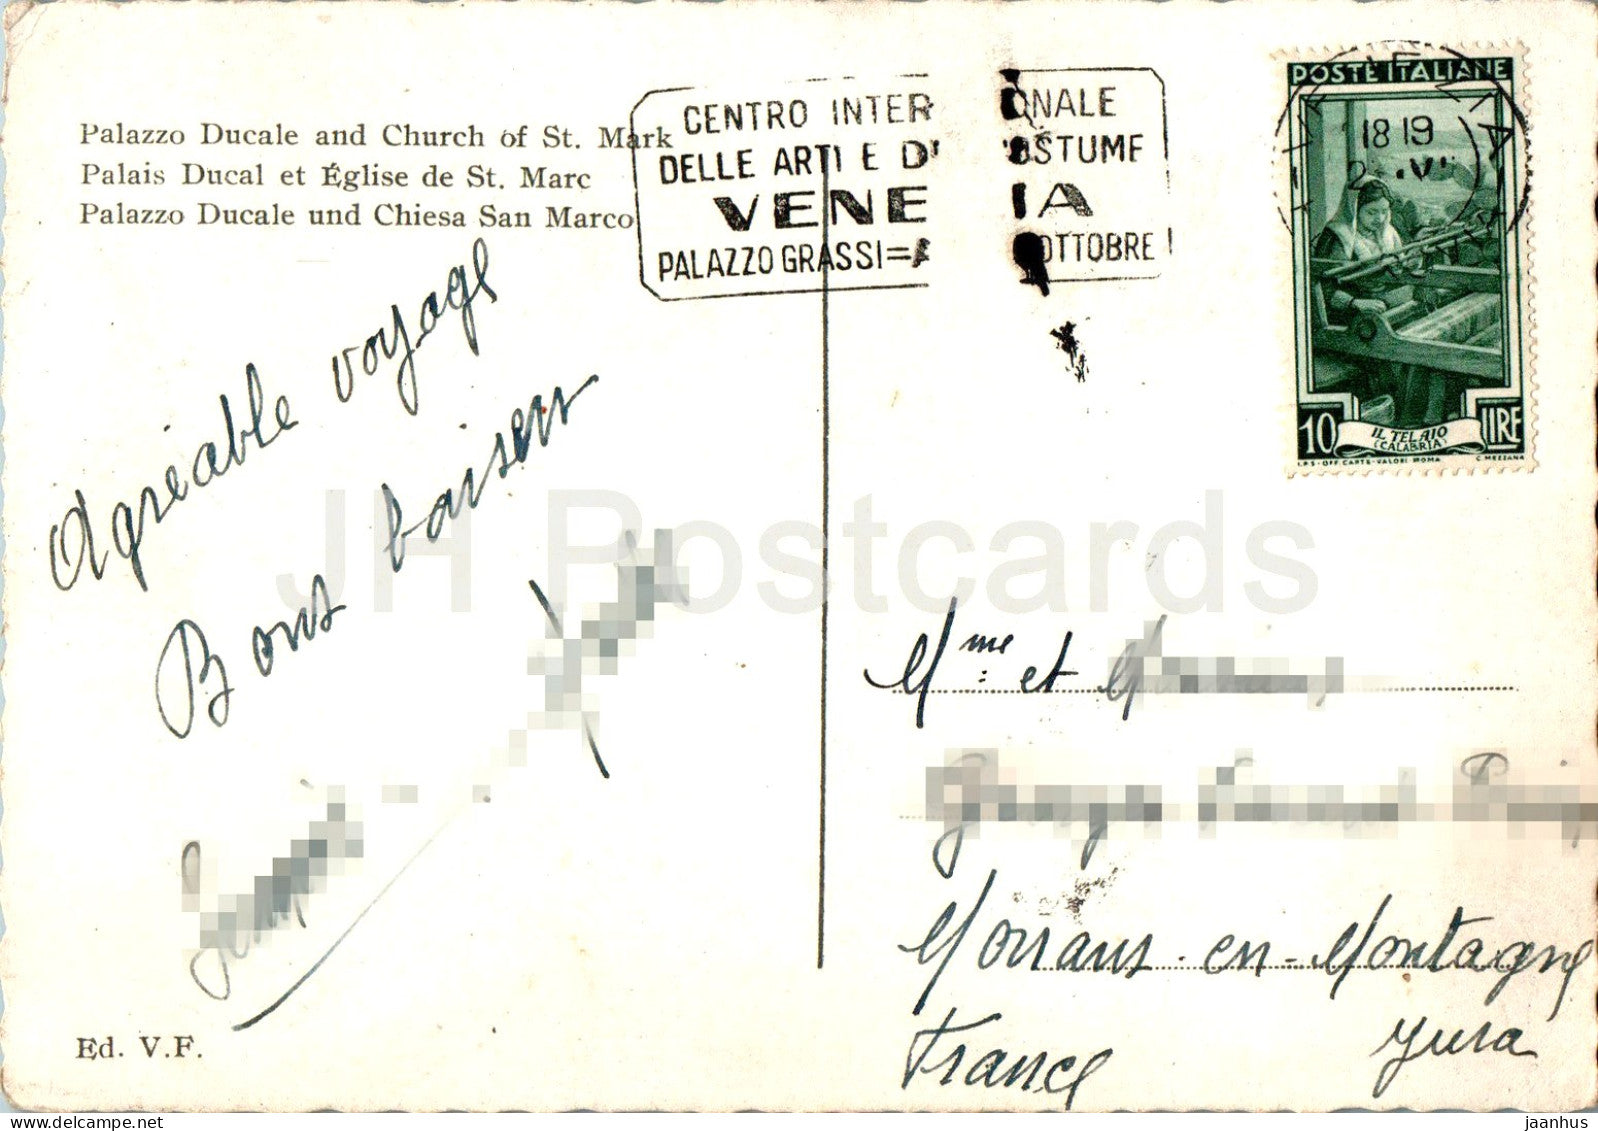 Palazzo Ducale and Church of St. Mark
Palais Ducal et Église de St. Marc
Palazzo Ducale und Chiesa San Marco
CENTRO INTER ONALE
DELLE ARTI E D' OSTUME
VENE IA
PALAZZO GRASSI=A OTTOBRE
POSTE ITALIANE
18 19
10 LIRE
IL TELAIO
(CALABRIA)
I.P.S-OFF.CARTE-VALORI-ROMA C.MEZZANA
Agréable voyage
Bons baisers
Mme et
Moirans-en-Montagne
Jura
France
Ed. V.F.
JH Postcards
jaanhus